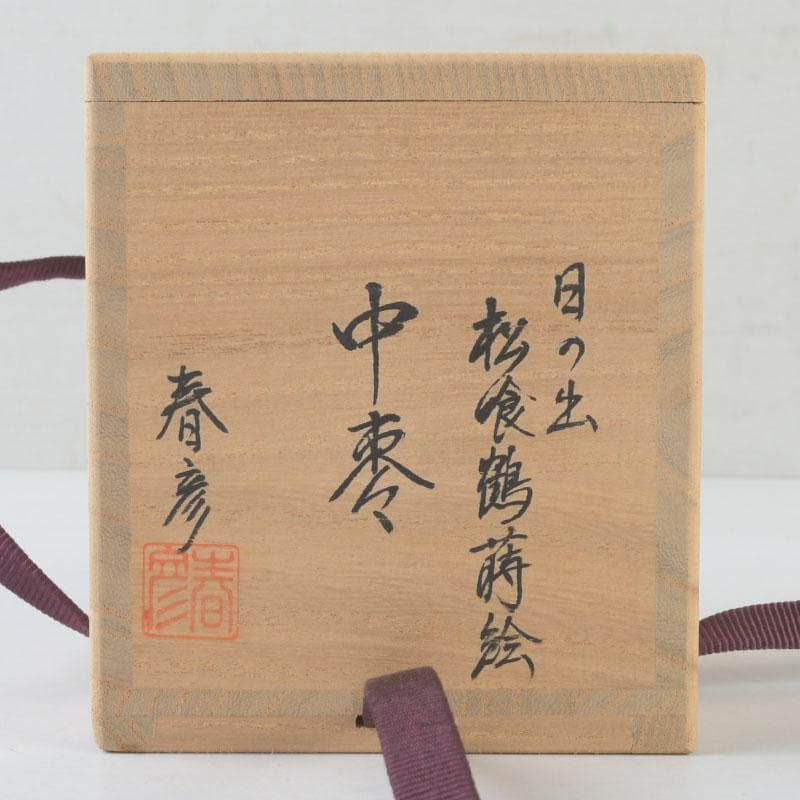 日の出
松喰鶴蒔絵
中棗
春彦
春彦